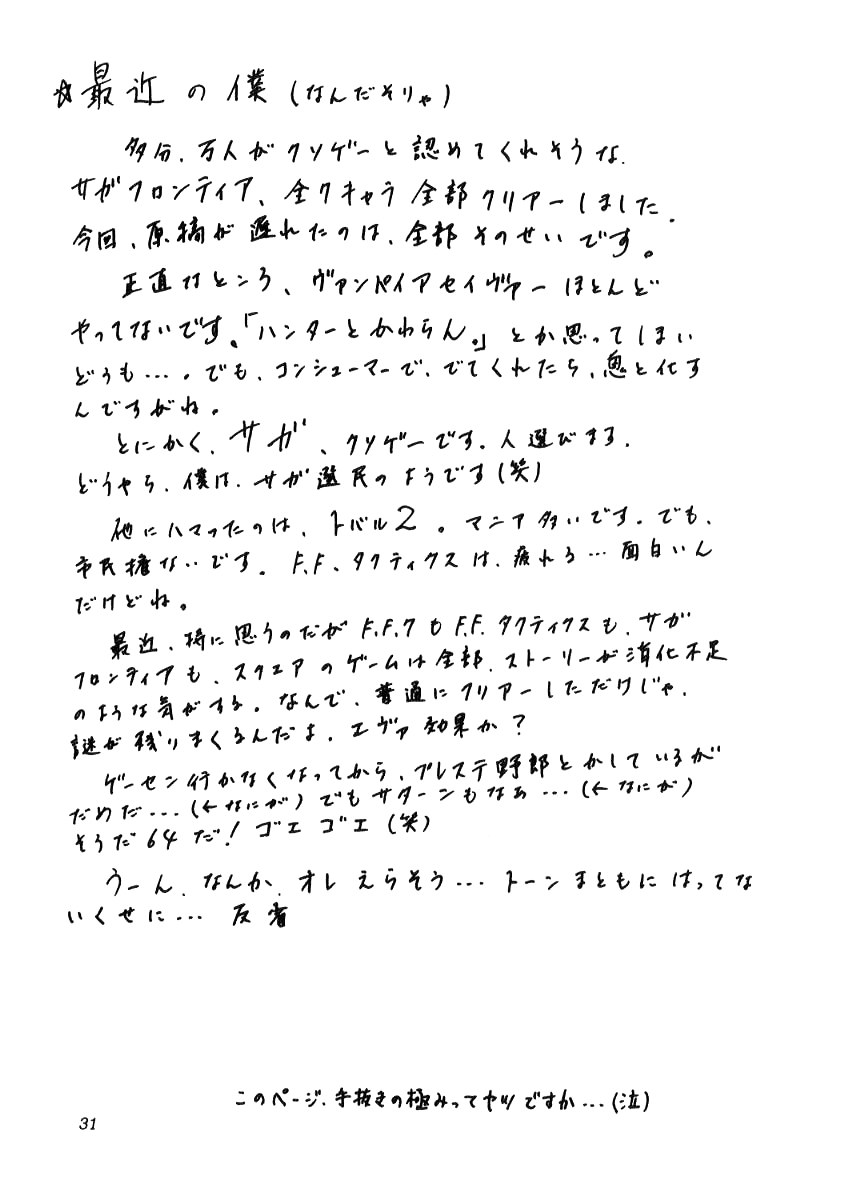 ☆最近の僕(なんだそりゃ)
多分、万人がクソゲーと認めてくれそうな、
サガフロンティア、全7キャラ全部クリアーしました。
今回、原稿が遅れたのは、全部そのせいです。
正直なところ、ヴァンパイアセイヴァーほとんど
やってないです。「ハンターとかわらん。」とか思ってしまい
どうも…。でも、コンシューマーで、でてくれたら、鬼と化す
んですがね。
とにかく、サガ、クソゲーです。人選びまる。
どうやら、僕は、サガ選民のようです(笑)
他にハマったのは、トバル2。マニア多いです。でも、
市民権ないです。F.F、タクティクスは、疲れる…面白いん
だけどね。
最近、特に思うのだがF.F.7もF.F.タクティクスも、サガ
フロンティアも、スクエアのゲームは全部、ストーリーが消化不足
のような気がする。なんで、普通にクリアーしただけじゃ、
謎が残りまくるんだよ。エヴァ効果か?
ゲーセン行かなくなってから、プレステ野郎とかしているが
だめだ…(←なにが)でもサターンもなぁ…(←なにが)
そうだ64だ!ゴエゴエ(笑)
うーん、なんか、オレえらそう…トーンまともにはってな
いくせに…反省
このページ、手抜きの極みってヤツですか…(泣)
31